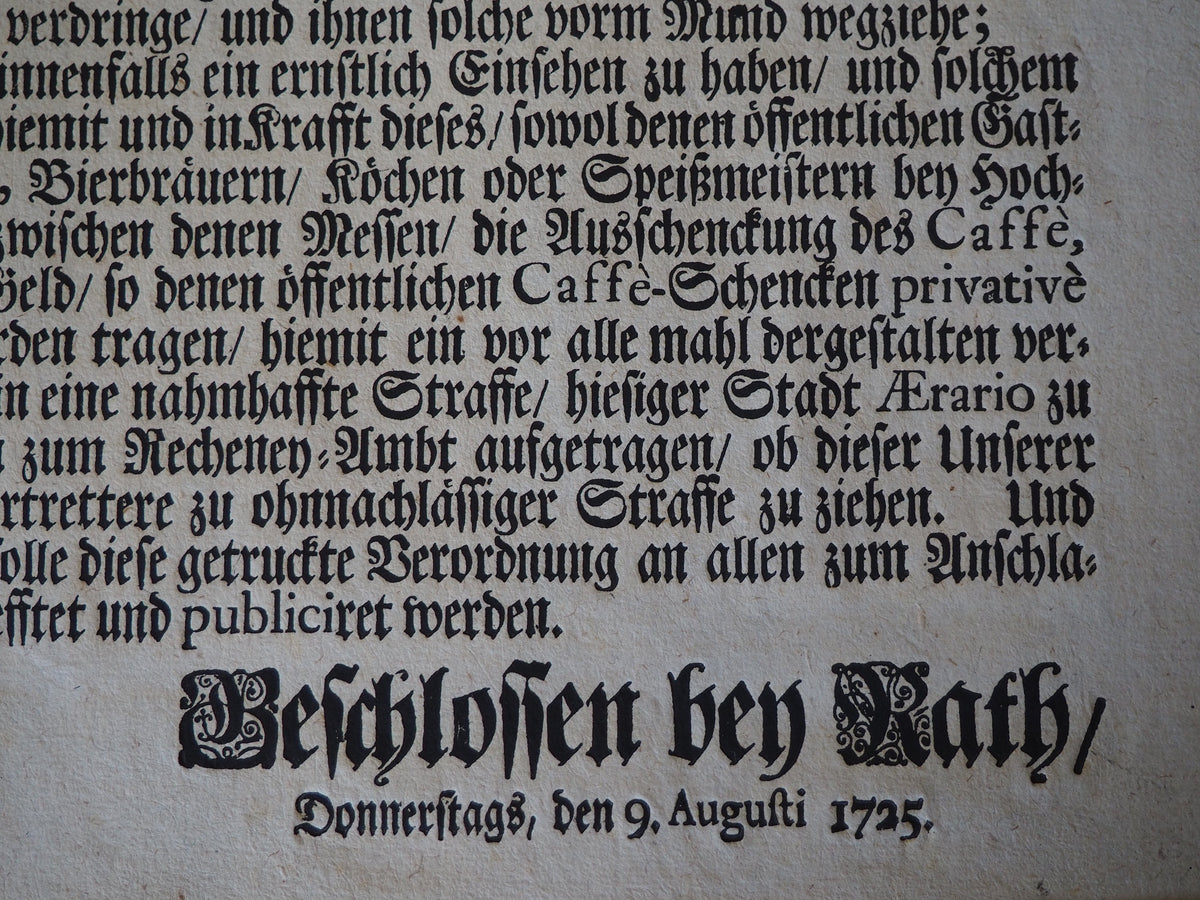 verdringe/ und ihnen solche vorm Mund wegziehe;
innenfalls ein ernstlich Einsehen zu haben/ und solchem
hiemit und in Krafft dieses/ sowol denen öffentlichen Gast-
, Bierbräuern/ Köchen oder Speißmeistern bey Hoch-
zwischen denen Messen/ die Ausschenckung des Caffè,
Geld/ so denen öffentlichen Caffè-Schencken privativè
rden tragen/ hiemit ein vor alle mahl dergestalten ver-
in eine nahmhaffte Straffe/ hiesiger Stadt Ærario zu
zum Recheney-Ambt aufgetragen/ ob dieser Unserer
rtrettere zu ohnnachlässiger Straffe zu ziehen. Und
solle diese getruckte Verordnung an allen zum Anschla-
efftet und publiciret werden.
Geschlossen bey Rath/
Donnerstags, den 9. Augusti 1725.